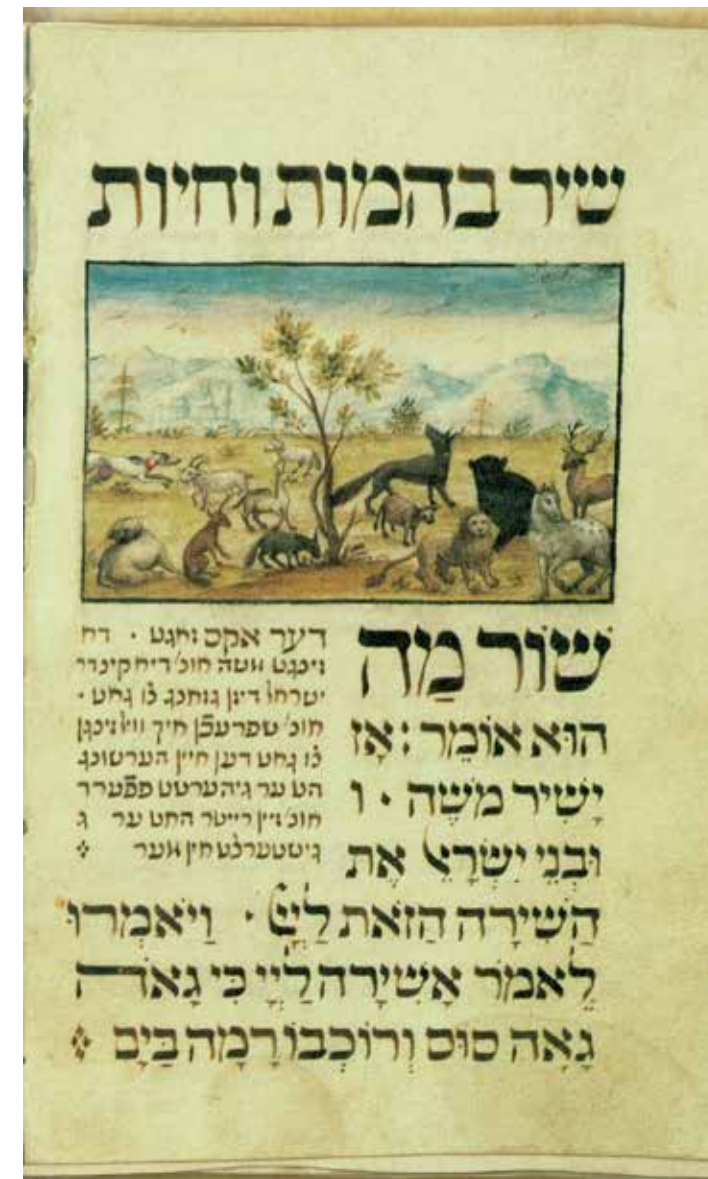 שיר בהמות וחיות
שׁוֹר מַה
הוּא אוֹמֵר : אָז
יָשִׁיר מֹשֶׁה · ו
וּבְנֵי יִשְׂרָאֵל אֶת
הַשִּׁירָה הַזֹּאת לַיְיָ · וַיֹּאמְרוּ
לֵאמֹר אָשִׁירָה לַיְיָ כִּי גָאֹה
גָּאָה סוּס וְרוֹכְבוֹ רָמָה בַיָּם
דער אקס זאגט · דא
זינגט משה אונ' דיא קינדר
ישראל דיזן גזאנג צו גאט ·
אונ' שפרעכן איך וויל זינגן
צו גאט דען איין הערשונג
הט ער גיהערשט פפערד
אונ' זיין רייטר האט ער ג
גישטערצט אין מער